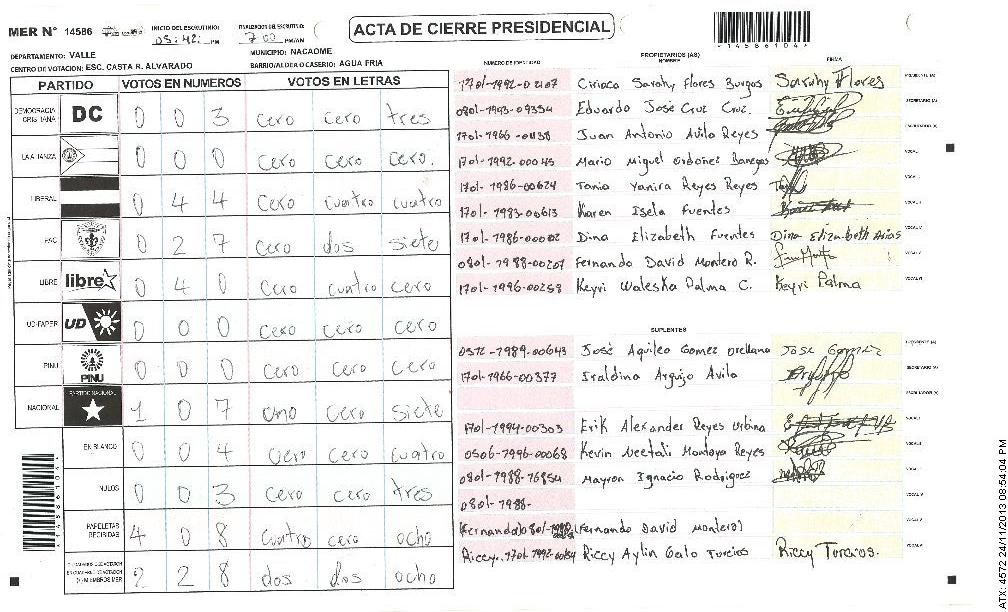 ACTA DE CIERRE PRESIDENCIAL
MER N° 14586
INICIO DEL ESCRUTINIO: 05:42: PM
FINALIZACION DEL ESCRUTINIO: 7:00 PM/AM
14586104
DEPARTAMENTO: VALLE
MUNICIPIO: NACAOME
CENTRO DE VOTACION: ESC. CASTA R. ALVARADO
BARRIO/ALDEA O CASERIO: AGUA FRIA
PARTIDO VOTOS EN NUMEROS VOTOS EN LETRAS
DEMOCRACIA CRISTIANA DC 0 0 3 cero cero tres
LA ALIANZA 0 0 0 cero cero cero.
LIBERAL 0 4 4 cero cuatro cuatro
PAC 0 2 7 cero dos siete
LIBRE libre 0 4 0 cero cuatro cero
UD-FAPER UD 0 0 0 cero cero cero
PINU PINU 0 0 0 cero cero cero
NACIONAL PARTIDO NACIONAL 1 0 7 uno cero siete
EN BLANCO 0 0 4 cero cero cuatro
NULOS 0 0 3 cero cero tres
PAPELETAS RECIBIDAS 4 0 8 cuatro cero ocho
2 2 8 dos dos ocho
PROPIETARIOS (AS)
NUMERO DE IDENTIDAD NOMBRE FIRMA
1701-1992-02107 Ciriaca Sarahy Flores Burgos Sarahy Flores
0801-1993-09354 Eduardo José Cruz Cruz.
1701-1966-01138 Juan Antonio Avila Reyes
1701-1992-00045 Mario Miguel Ordoñez Banegas
1701-1986-00624 Tania Yanira Reyes Reyes
1701-1983-00613 Karen Isela Fuentes
1701-1986-00002 Dina Elizabeth Fuentes Dina Elizabeth Arias
0801-1988-00207 Fernando David Montero R.
1701-1996-00258 Keyri Waleska Palma C. Keyri Palma
SUPLENTES
1989-00643 José Aquileo Gomez Orellana Jose Gomez
1701-1966-00377 Iraldina Argujo Avila
1701-1994-00303 Erik Alexander Reyes Urbina
0506-1996-00068 Kevin Neetali Montoya Reyes
0801-1988-16854 Mayron Ignacio Rodriguez
0801-1988-
(Fernando) 0801- (Fernando David Montero)
Riccy. 1701-1992- Riccy Aylin Galo Turcios Riccy Turcios.
ATX: 4572 24/11/2013 08:54:04 PM